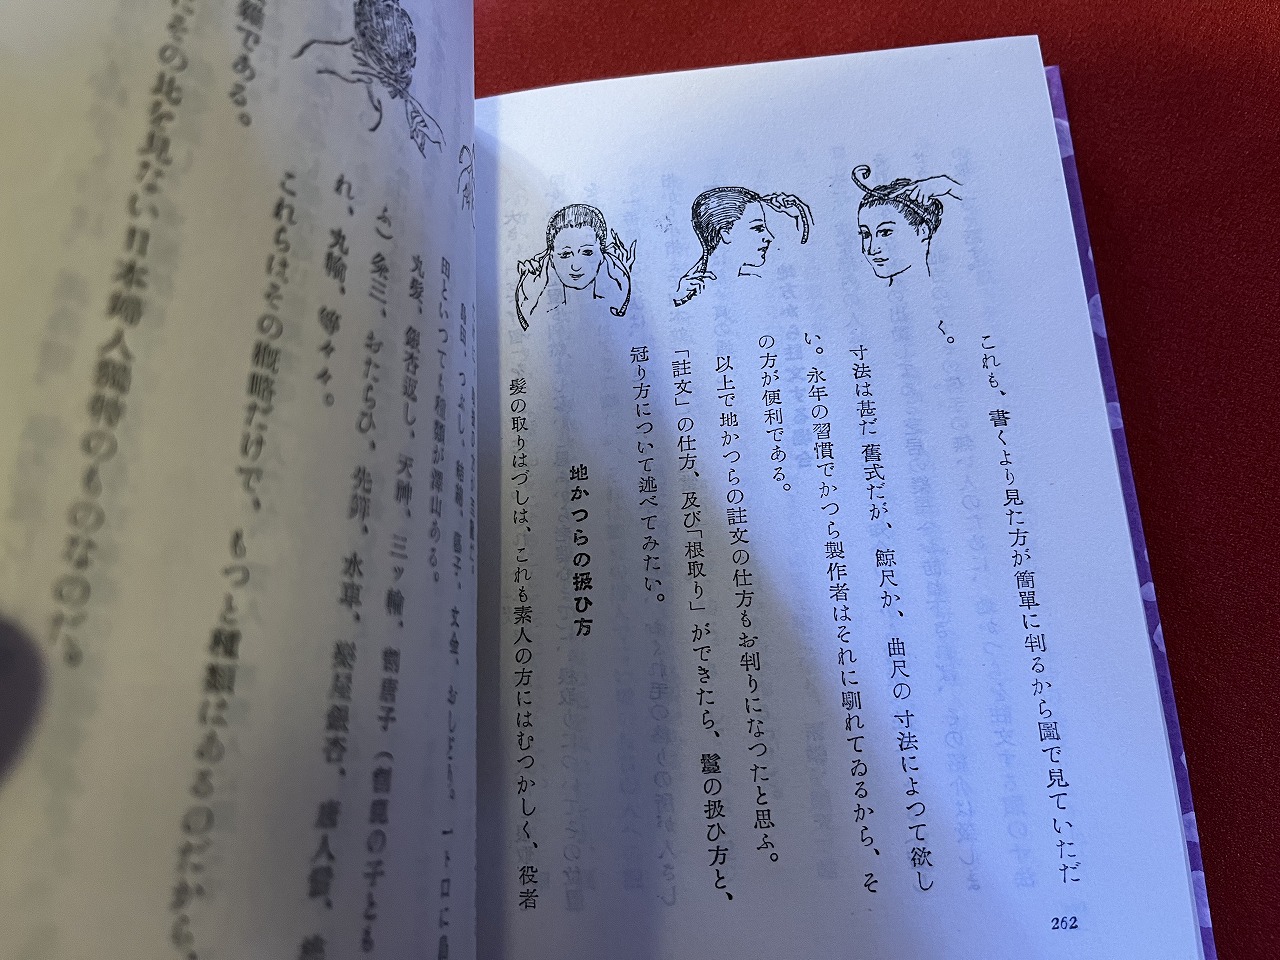 これも、書くより見た方が簡單に判るから圖で見ていただ
く。
寸法は甚だ舊式だが、鯨尺か、曲尺の寸法によつて欲し
い。永年の習慣でかつら製作者はそれに馴れてゐるから、そ
の方が便利である。
以上で地かつらの註文の仕方もお判りになつたと思ふ。
「註文」の仕方、及び「根取り」ができたら、鬘の扱ひ方と、
冠り方について述べてみたい。
地かつらの扱ひ方
髮の取りはづしは、これも素人の方にはむつかしく、役者
262
田といつても種類が澤山ある。
丸髮、銀杏返し、天神、三ッ輪、
れ、丸輪、等々。
これらはその概略だけで、もつと種類にあるのだから、
にその比を見ない日本婦人獨特のものなのだ。
である。